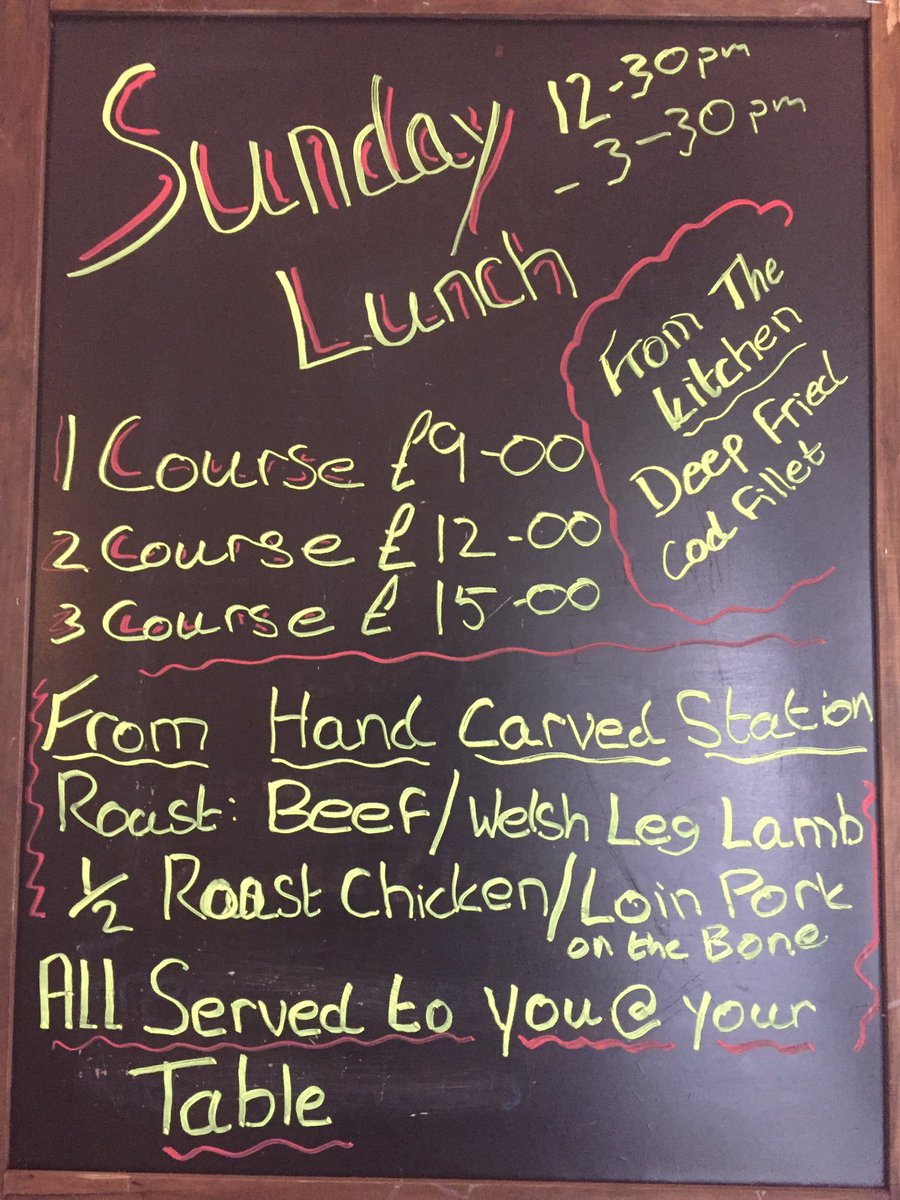 Sunday
Lunch
12-30pm
- 3-30pm
From The
kitchen
Deep Fried
Cod Fillet
1 Course £9-00
2 Course £12-00
3 Course £15-00
From Hand Carved Station
Roast: Beef/Welsh Leg Lamb
1/2 Roast Chicken/Loin Pork
on the Bone
All Served to you @ your
Table